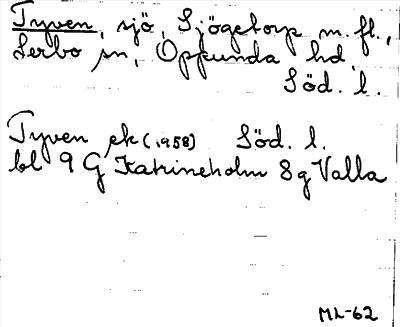 Tyven, sjö, Sjögetorp m. fl.,
Lerbo sn, Oppunda hd
Söd. l.
Tyven ek (1958) Söd. l.
bl 9 G Katrineholm 8 g Valla
ML-62